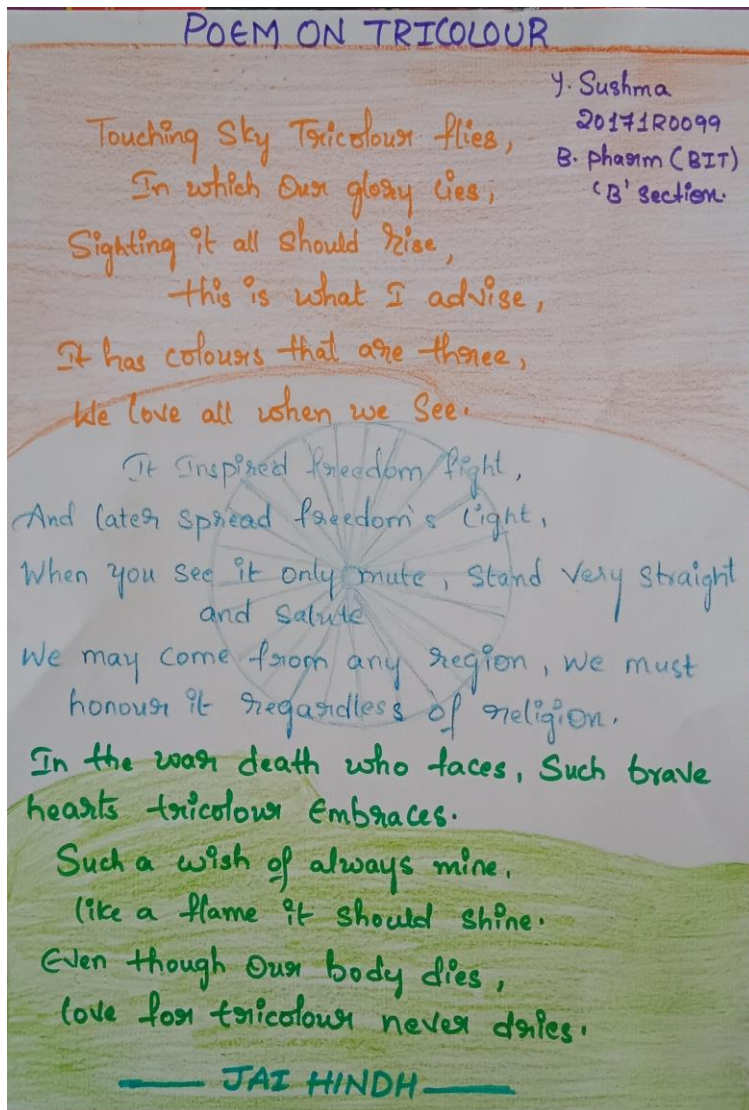 POEM ON TRICOLOUR
Y. Sushma
20171R0099
B. pharm (BIT)
'B' section.
Touching Sky Tricolour flies,
In which Our glory lies,
Sighting it all should rise,
this is what I advise,
It has colours that are three,
We love all when we See.
It Inspired freedom fight,
And later spread freedom's light,
When you see it only mute, Stand Very Straight
and salute
We may come from any region, we must
honour it regardless of religion.
In the war death who faces, Such brave
hearts tricolour Embraces.
Such a wish of always mine,
like a flame it should shine.
Even though Our body dies,
love for tricolour never dries.
JAI HINDH